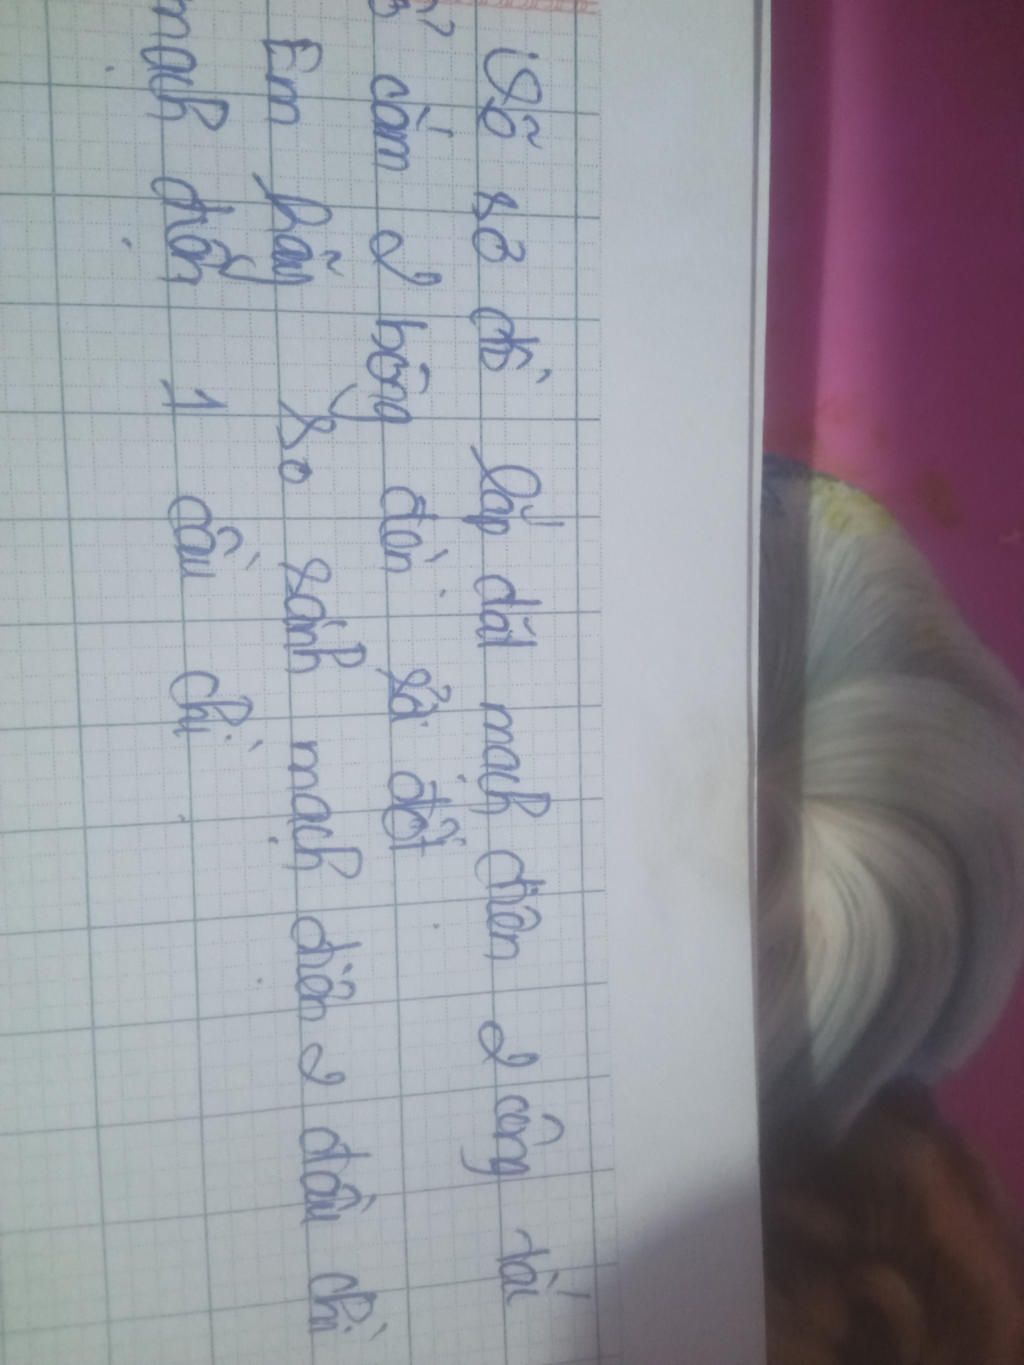 Vẽ sơ đồ lắp đặt mạch điện 2 công tắc
ổ cắm 2 bóng đèn sợi đốt
Em hãy so sánh mạch điện 2 đầu chì
mạch điện 1 cầu chì